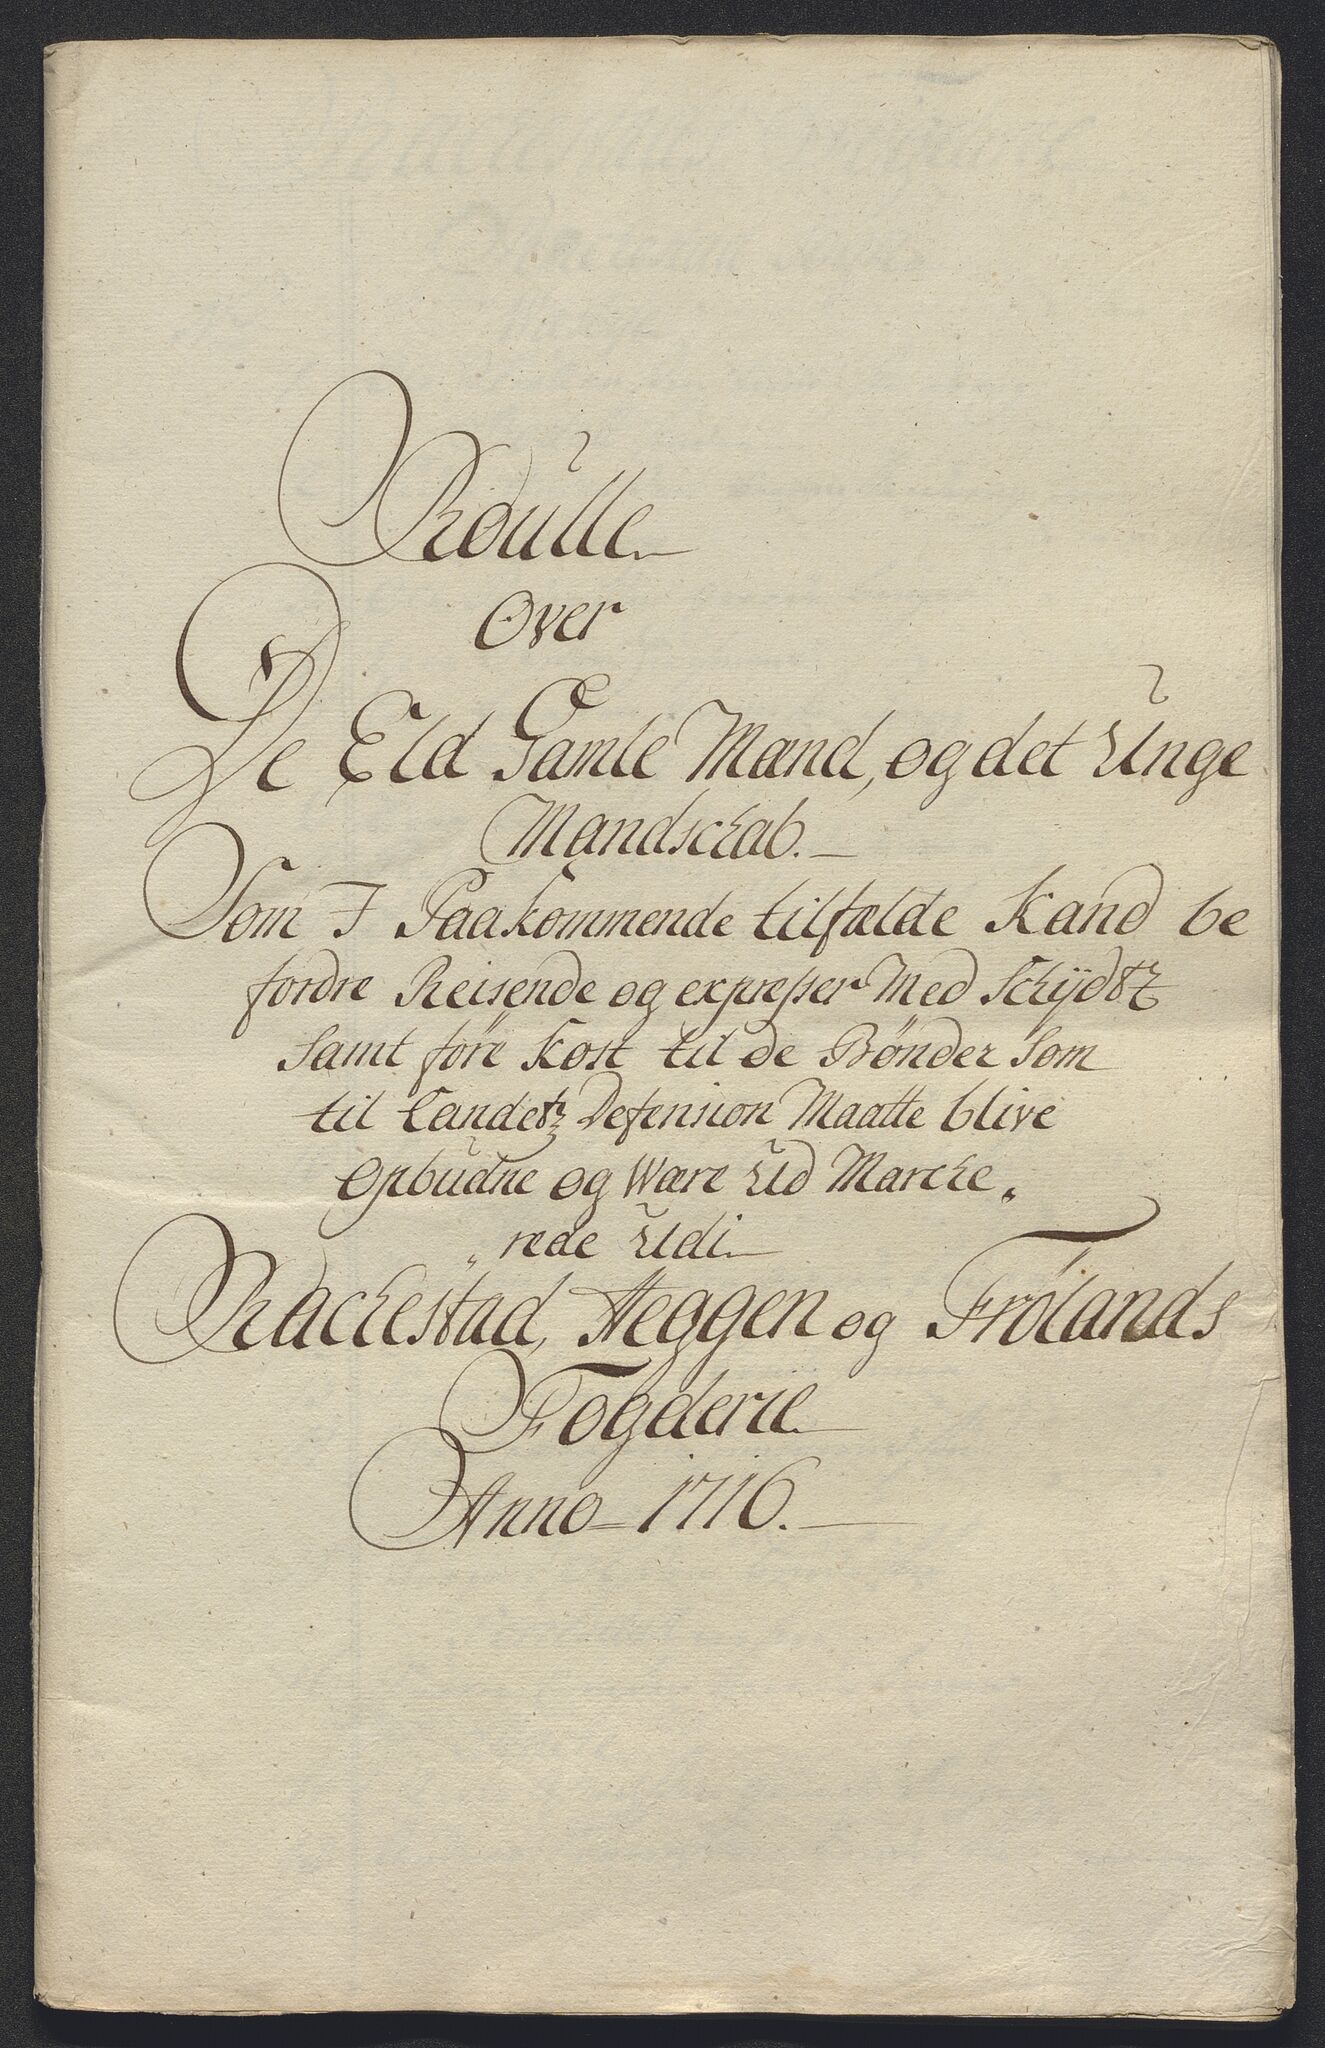 Roulle
Over
De Eld Gamle Mænd, og det Unge
Mandschab.
Som I Paakommende tilfælde Kand be
fordre Reisende og expresser Med Schydtz
Samt føre Kost til de Bønder Som
til Landetz Defension Maatte blive
Opbudne og Wære Ud Marche„
„rede Udi
Rachestad, Heggen og Frølands
Fogderie
Anno 1716.